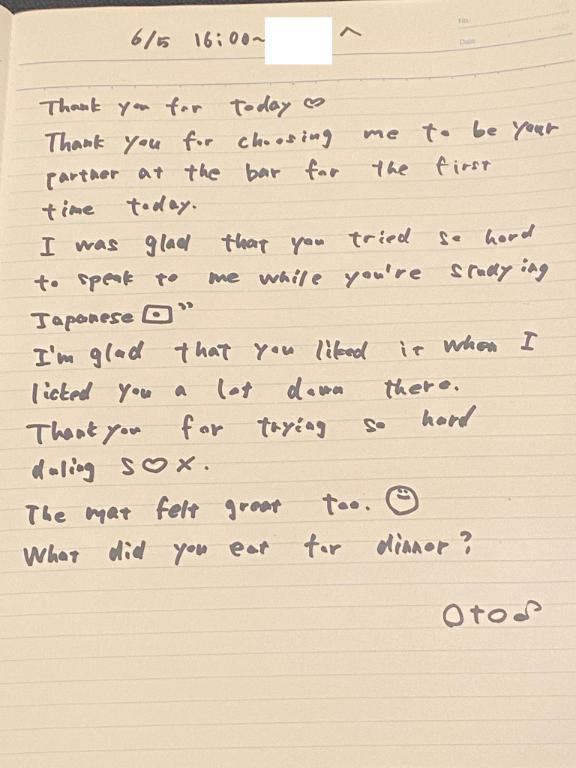 6/5 16:00~ へ
No.
Date
Thank you for today ♡
Thank you for choosing me to be your
partner at the bar for the first
time today.
I was glad that you tried so hard
to speak to me while you're studying
Japanese 🇯🇵"
I'm glad that you liked it when I
licked you a lot down there.
Thank you for trying so hard
duling S♡X.
The mat felt great too. ☺
What did you eat for dinner?
Oto♪